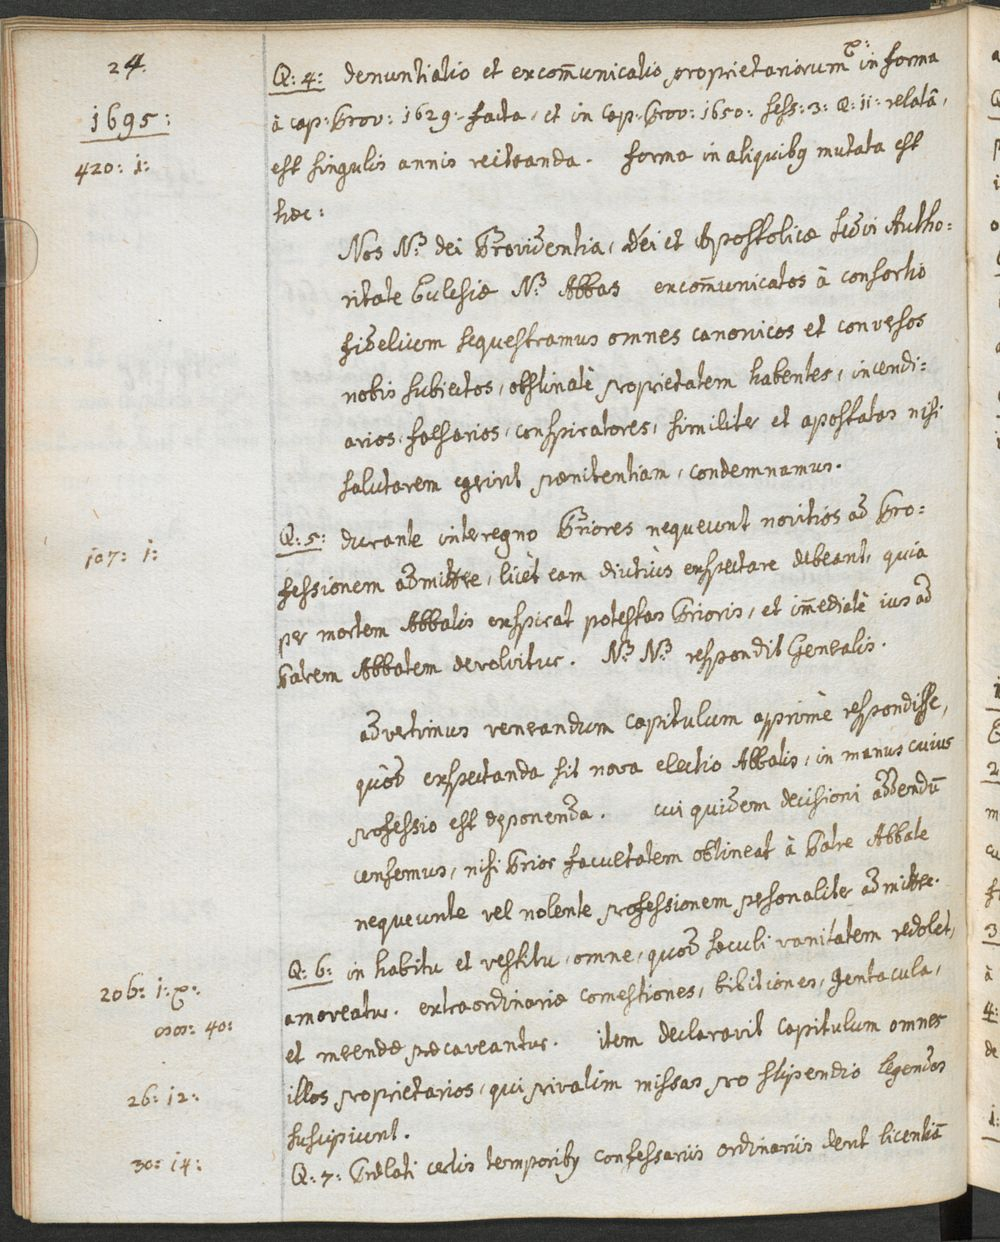 24.
1695:
Q: 4: denuntiatio et excom̃unicatio proprietariorum in forma
à cap: Prov: 1629. facta, et in Cap: Prov: 1650: sess: 3: Q: 11: relatâ,
420: 1:
est singulis annis recitanda. forma in aliquibq mutata est
hæc:
Nos N: dei Providentia, Dei et Apostolicæ sedis Autho:
ritate Ecclesiæ N: Abbas excom̃unicatos à consortio
fidelium sequestramus omnes canonicos et conversos
nobis subiectos, obstinatè proprietatem habentes, incendi:
arios, falsarios, conspiratores, similiter et apostatas nisi
salutarem egerint pœnitentiam, condemnamus.
107: 1:
Q: 5: durante interregno Priores nequeunt novitios ad Pro:
fessionem admittere, licèt eam diutiùs exspectare debeant, quia
per mortem Abbatis exspirat potestas Prioris, et im̃ediatè ius ad
Patrem Abbatem devolvitur. N: N: respondit Generalis.
advertimus venerandum Capitulum apprimè respondisse,
quòd exspectanda sit nova electio Abbatis, in manus cuius
professio est deponenda. cui quidem decisioni addendũ
censemus, nisi Prior facultatem obtineat à Patre Abbate
nequeunte vel nolente professionem personaliter admittere.
206: 1:
Q: 6: in habitu et vestitu, omne, quod sæculi vanitatem redolet,
amoveatur. extraordinariæ comestiones, bibitiones, gentacula,
40:
et merendæ præcaveantur. item declaravit Capitulum omnes
26: 12:
illos proprietarios, qui privatim missas pro stipendio legendas
suscipiunt.
30: 14:
Q: 7: Prælati certis temporibq confessariis ordinariis dent licentiã